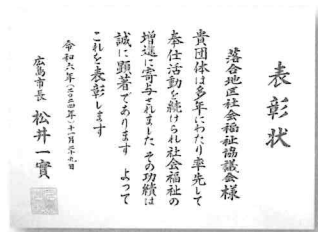 表彰状
落合地区社会福祉協議会様
貴団体は多年にわたり率先して
奉仕活動を続けられ社会福祉の
増進に寄与されました その功績は
誠に顕著であります よって
これを表彰します
令和六年(二〇二四年)十一月二十九日
広島市長 松井一實